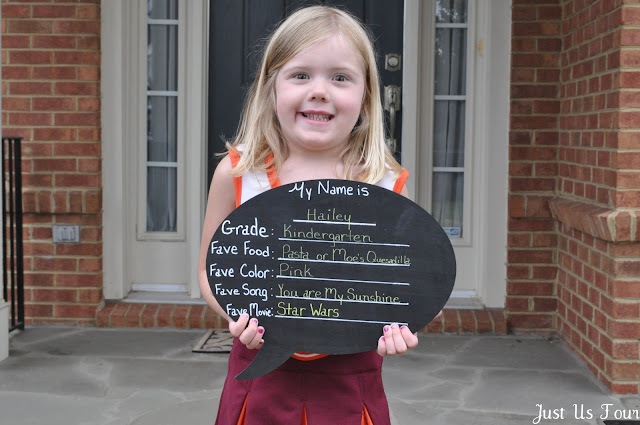 My Name is
Hailey
Grade: Kindergarten
Fave Food: Pasta or Moe's Quesadilla
Fave Color: Pink
Fave Song: You are My Sunshine
Fave Movie: Star Wars
Just Us Four